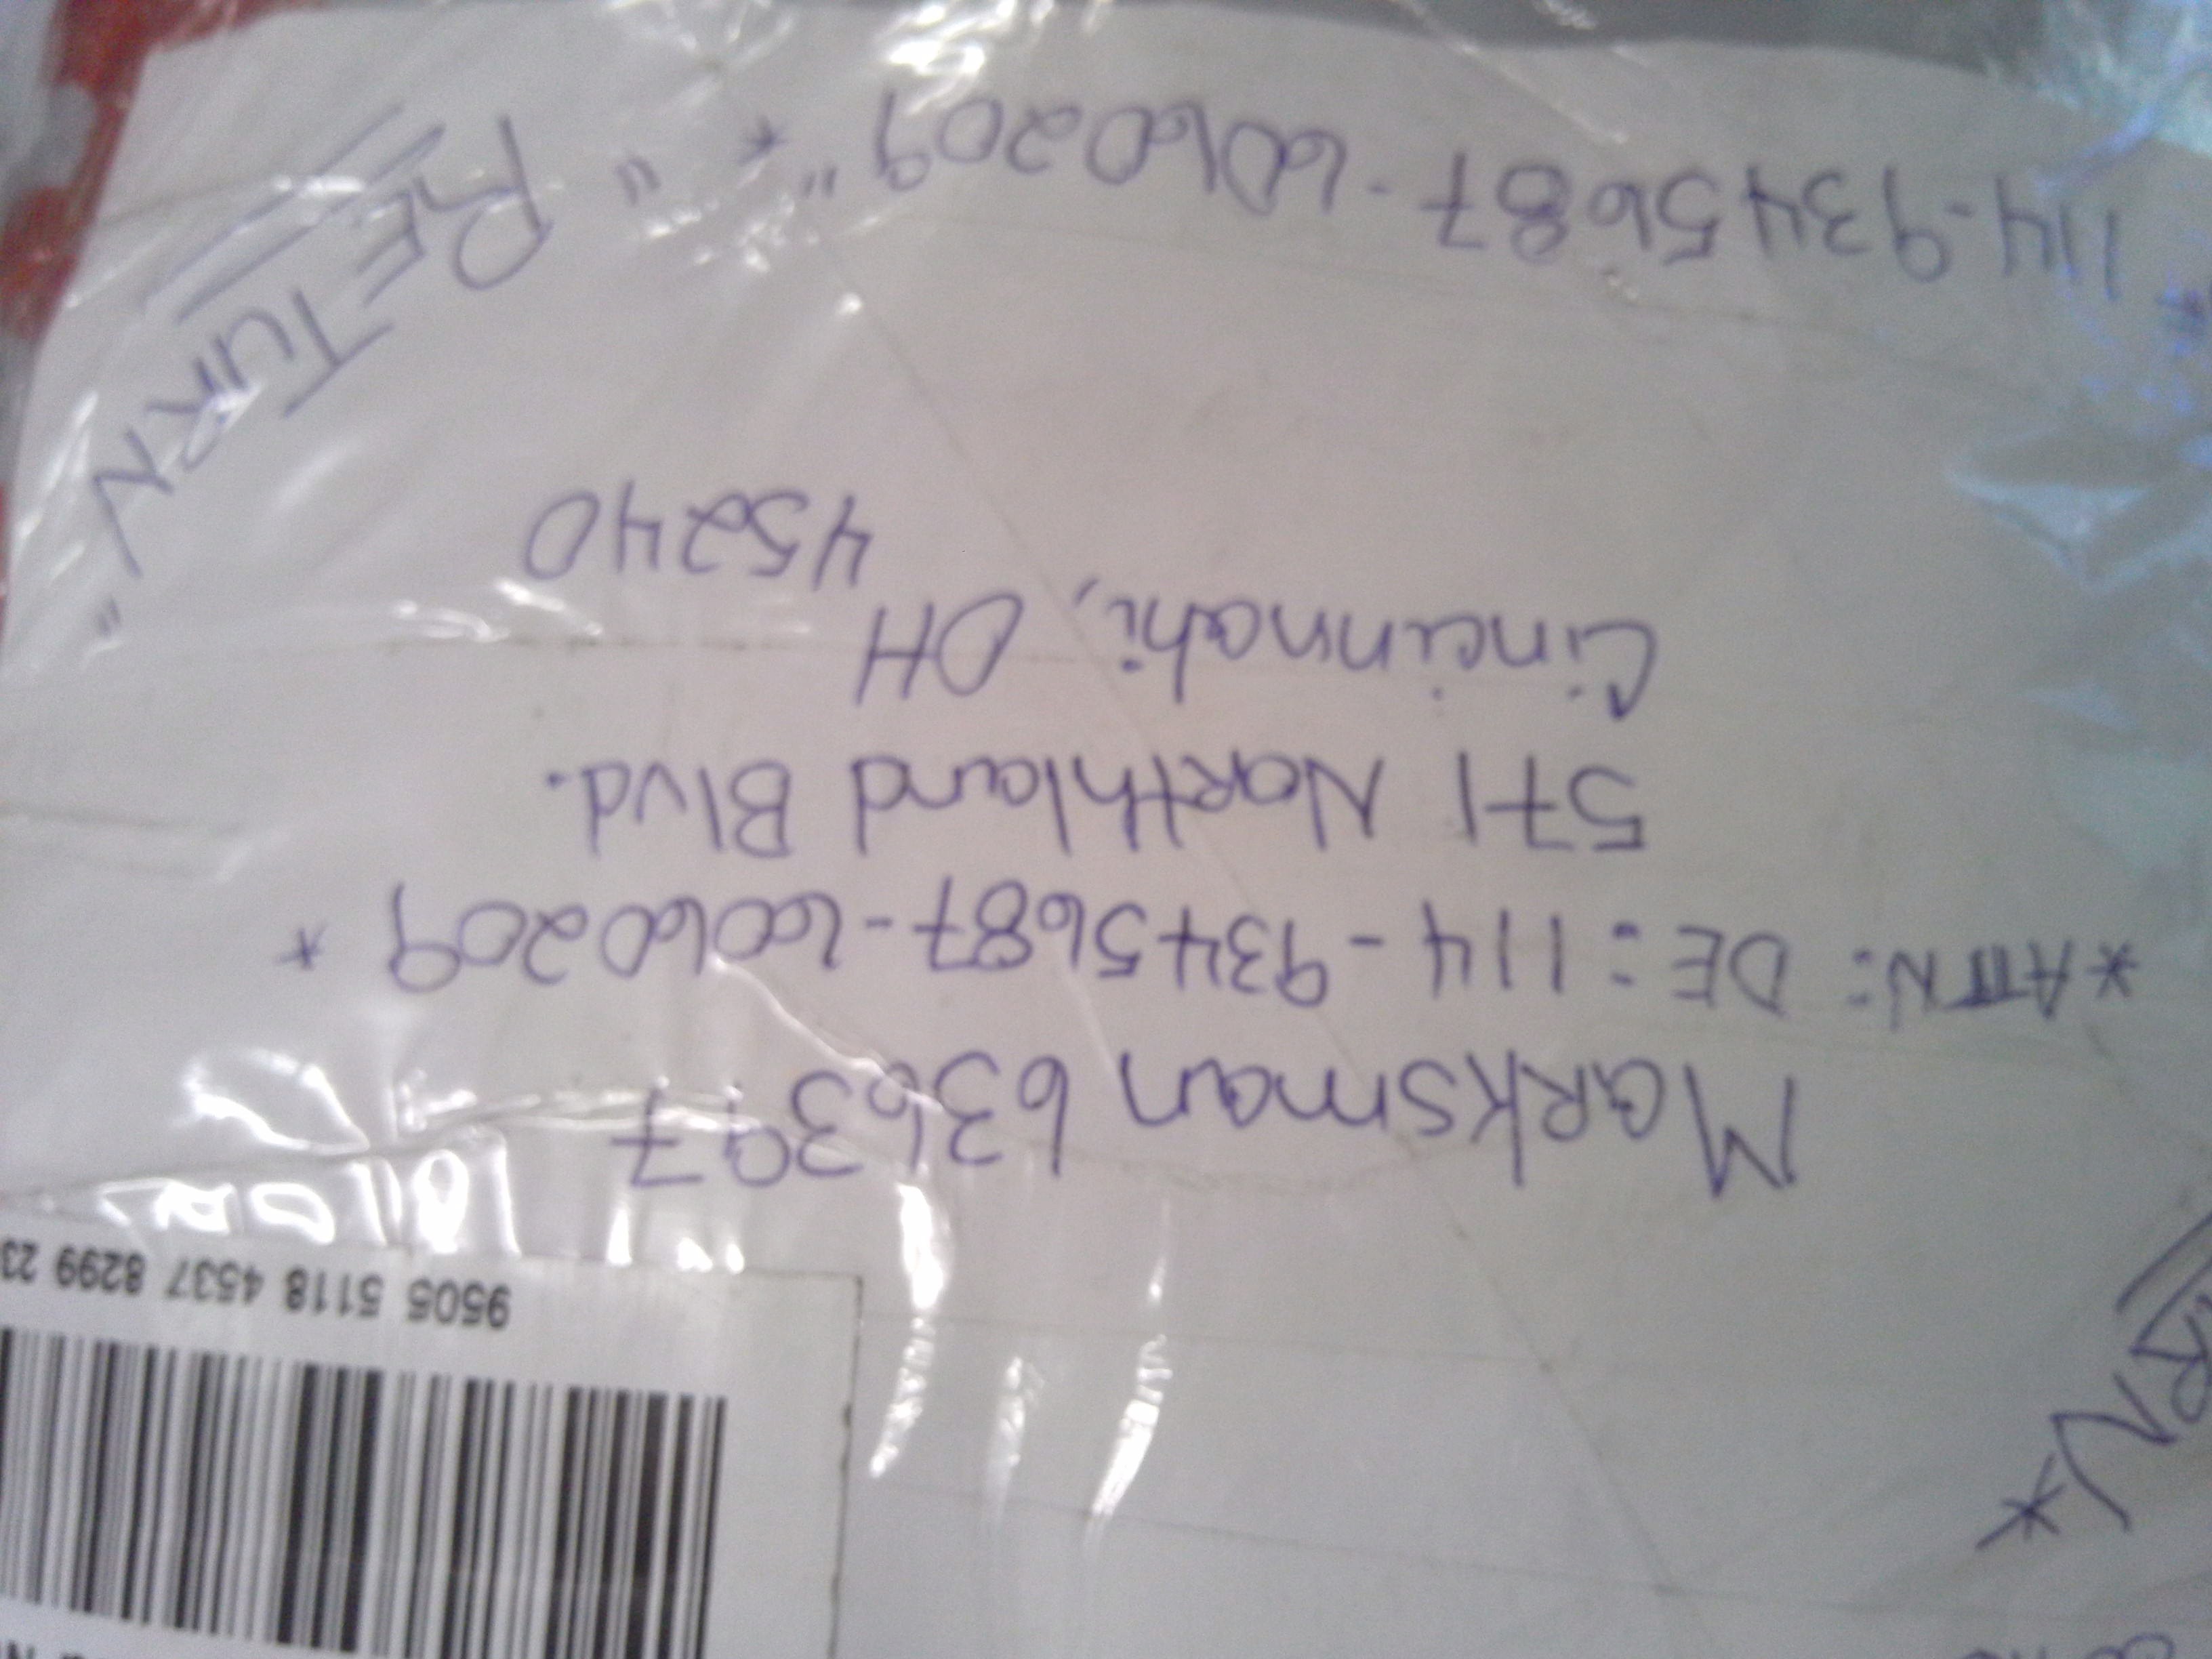 9505 5118 4537 8299 23
RN*
Marksman 636397
*ATTN: DE: 114-9345687-6060209 *
571 Northland Blvd.
Cincinnati, OH
45240
* 114-9345687-6060209" * " RETURN "